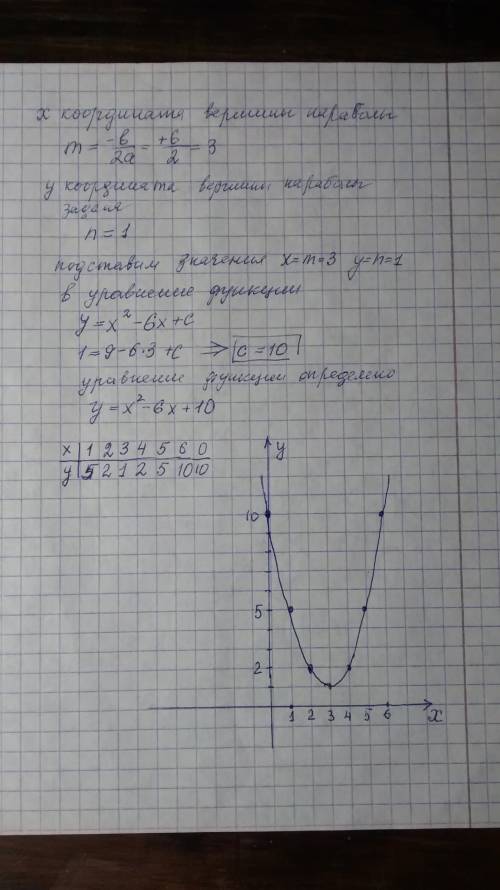 x координата вершины параболы
m = -b/2a = +6/2 = 3
y координата вершины параболы
задана
n = 1
подставим значения x=m=3 y=n=1
в уравнение функции
y = x² - 6x + c
1 = 9 - 6·3 + c ⇒ c = 10
уравнение функции определено
y = x² - 6x + 10
x | 1 2 3 4 5 6 0
y | 5 2 1 2 5 10 10
y
10
5
2
1 2 3 4 5 6 x